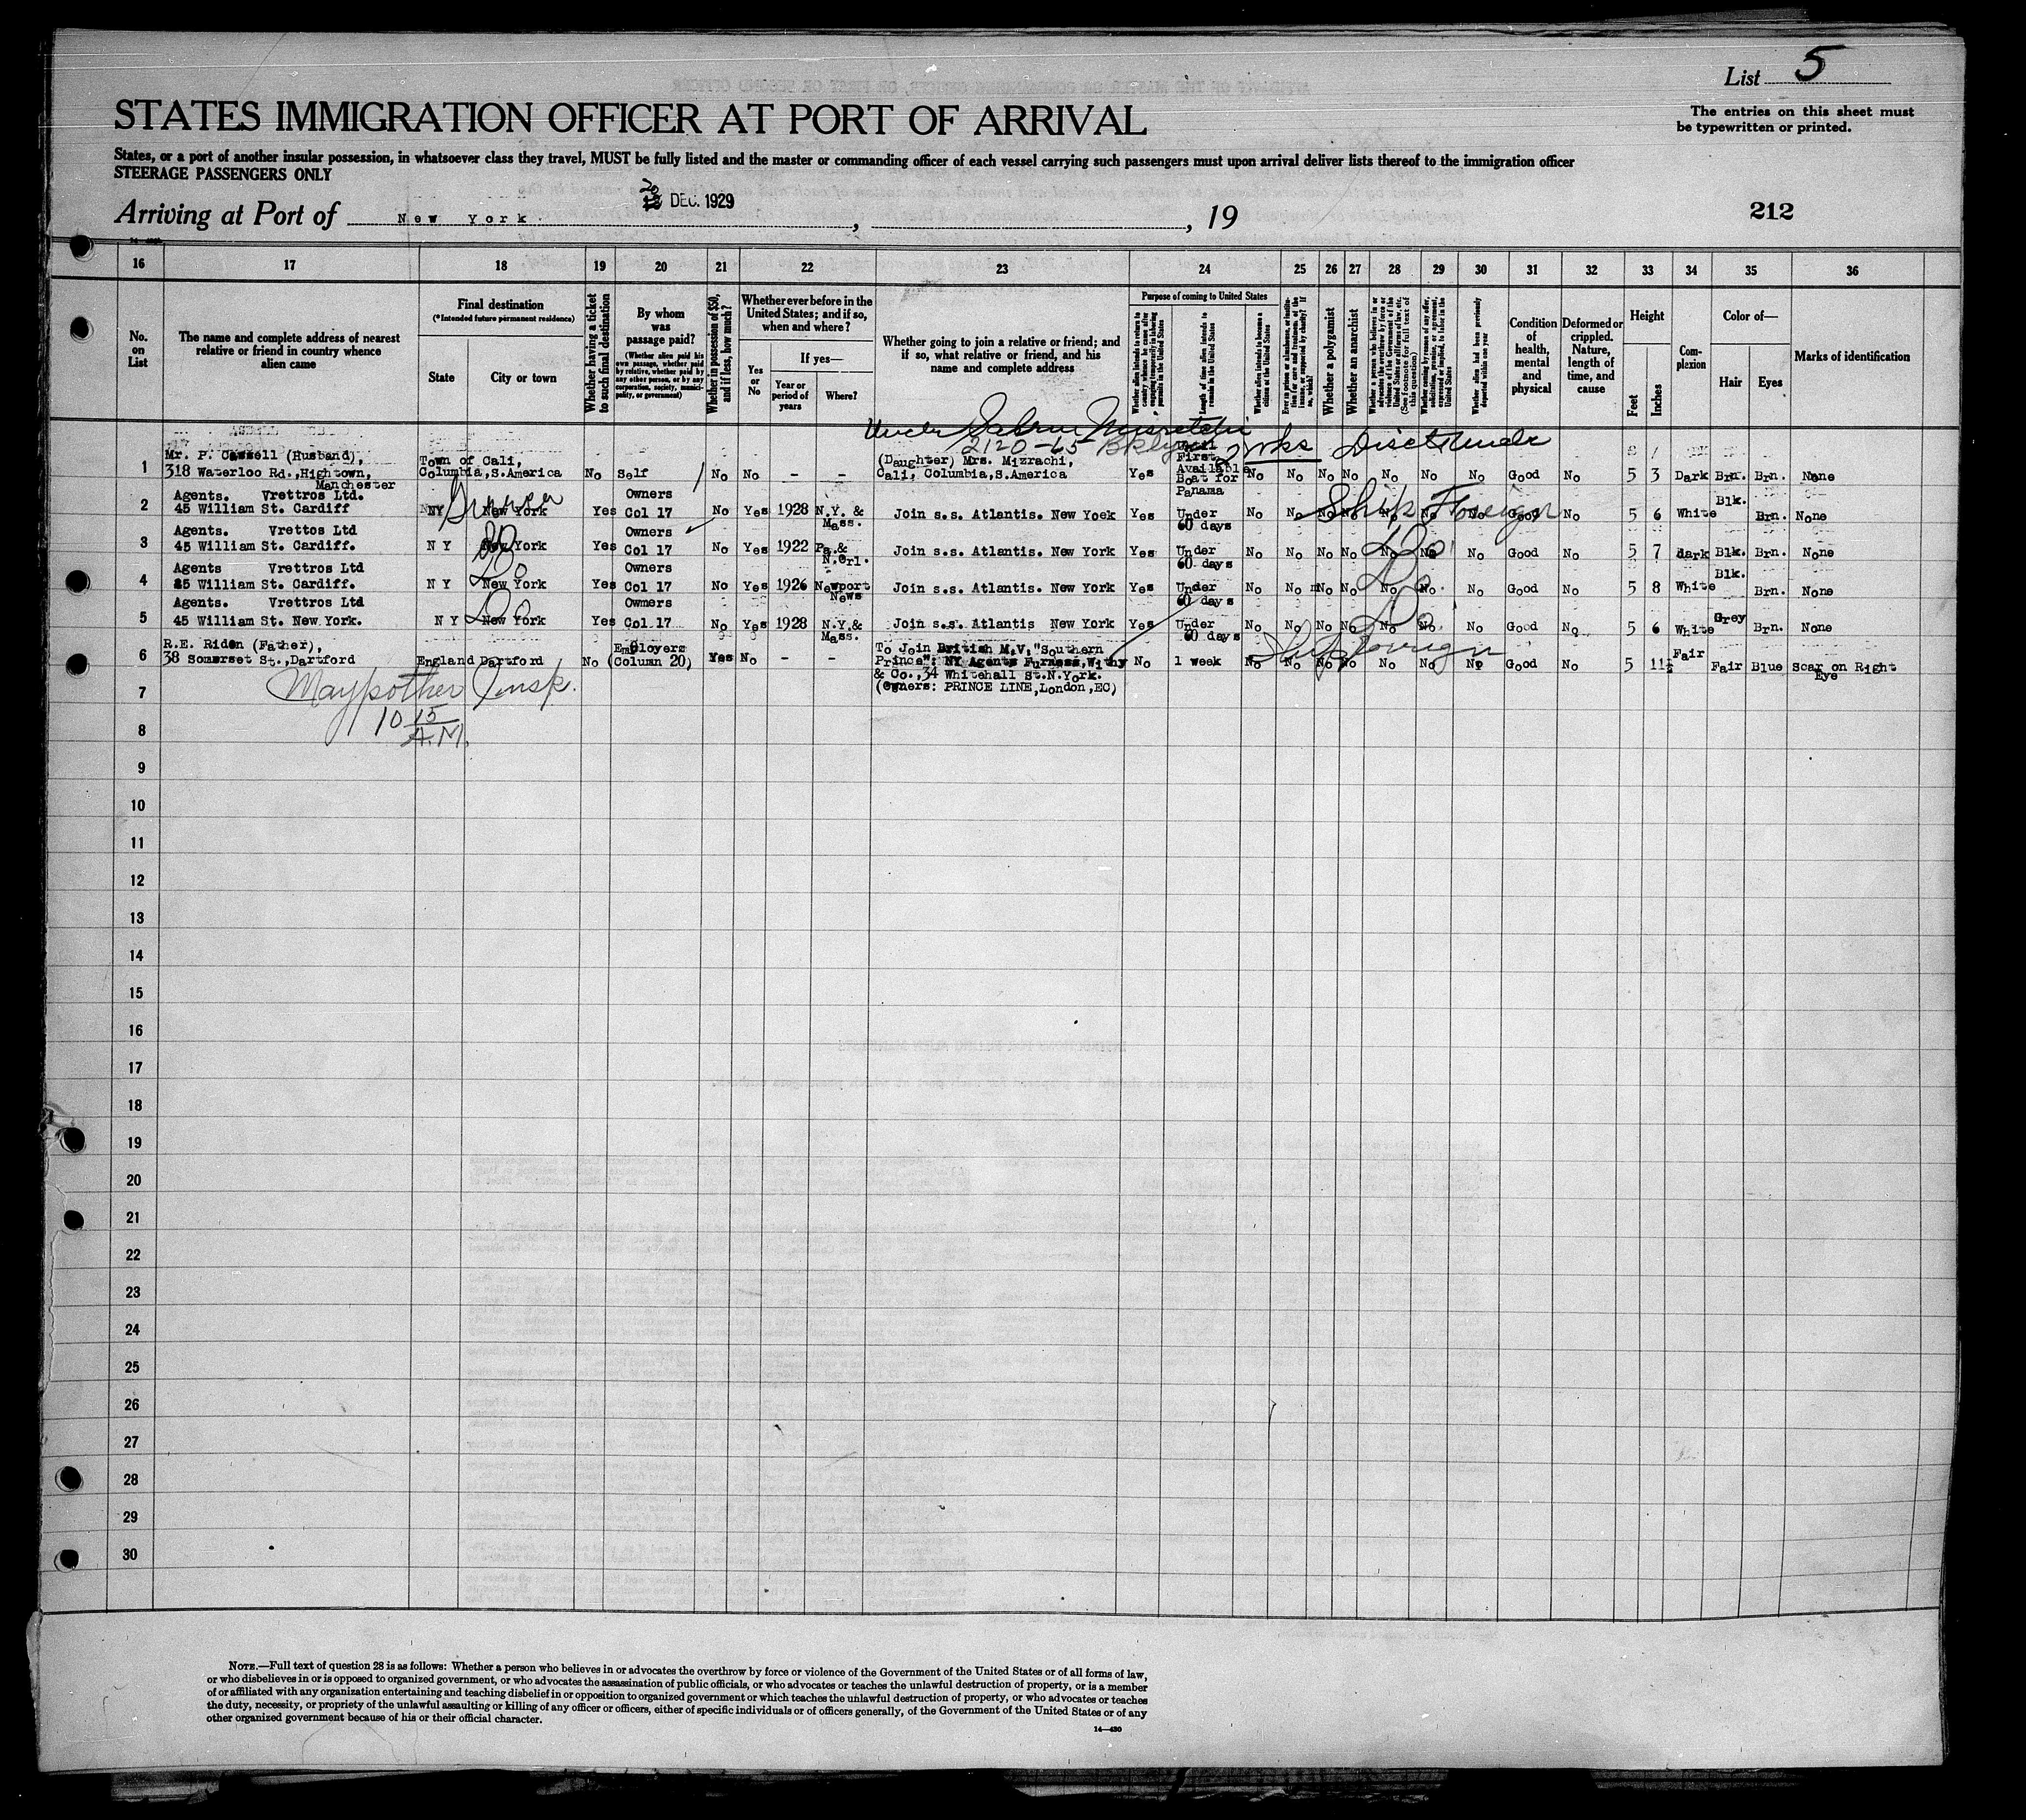 List 5
The entries on this sheet must
be typewritten or printed.
STATES IMMIGRATION OFFICER AT PORT OF ARRIVAL
States, or a port of another insular possession, in whatsoever class they travel, MUST be fully listed and the master or commanding officer of each vessel carrying such passengers must upon arrival deliver lists thereof to the immigration officer
STEERAGE PASSENGERS ONLY
Arriving at Port of New York, 20 DEC. 1929, 19
212
16 17 18 19 20 21 22 23 24 25 26 27 28 29 30 31 32 33 34 35 36
No. on List
The name and complete address of nearest
relative or friend in country whence
alien came
Final destination
(*Intended future permanent residence)
State
City or town
Whether having a ticket
to such final destination
By whom
was
passage paid?
(Whether alien paid his
own passage, whether paid
by relative, whether paid by
any other person, or by any
corporation, society, munici-
pality, or government)
Whether in possession of $50,
and if less, how much?
Whether ever before in the
United States; and if so,
when and where?
Yes
or
No
If yes—
Year or
period of
years
Where?
Whether going to join a relative or friend; and
if so, what relative or friend, and his
name and complete address
Purpose of coming to United States
Whether alien intends to return to
country whence he came after
engaging temporarily in laboring
pursuits in the United States
Length of time alien intends to
remain in the United States
Whether alien intends to become a
citizen of the United States
Whether a polygamist
Whether an anarchist
Whether alien had been previously
deported within one year
Condition
of
health,
mental
and
physical
Deformed or
crippled.
Nature,
length of
time, and
cause
Height
Feet
Inches
Com-
plexion
Color of—
Hair
Eyes
Marks of identification
2120-65 Bklyn
1 Mr. P. Cassell (Husband),
318 Waterloo Rd., Hightown,
Manchester
Town of Cali,
Columbia, S.America
No Self No No - -
(Daughter) Mrs. Mizrachi,
Cali, Columbia, S.America
Yes
Until
First
Available
Boat for
Panama
No No No No No No No Good No 5 3 Dark Brn. Brn. None
2 Agents. Vrettros Ltd.
45 William St. Cardiff
NY New York Yes Owners
Col 17 No Yes 1928 N.Y. &
Mass.
Join s.s. Atlantis. New Yoek Yes Under
60 days
No No No No No No No Good No 5 6 White Blk. Brn. None
Ship Foreign
3 Agents. Vrettos Ltd
45 William St. Cardiff.
N Y New York Yes Owners
Col 17 No Yes 1922 Pa.&
N.Orl.
Join s.s. Atlantis. New York Yes Under
60 days
No No No No No No No Good No 5 7 dark Blk. Brn. None
Do
4 Agents Vrettros Ltd
45 William St. Cardiff.
N Y New York Yes Owners
Col 17 No Yes 1926 Newport
News
Join s.s. Atlantis. New York Yes Under
60 days
No No No No No No No Good No 5 8 White Blk. Brn. None
Do
5 Agents. Vrettros Ltd
45 William St. New York.
N Y New York Yes Owners
Col.17 No Yes 1928 N.Y.&
Mass.
Join s.s. Atlantis New York Yes Under
60 days
No No No No No No No Good No 5 6 White Grey Brn. None
Do
6 R.E. Riden (Father),
38 Somerset St., Dartford
England Dartford No Employers
(Column 20) Yes No - -
To Join British M.V. "Southern
Prince": NY Agents Furness, Withy
& Co., 34 Whitehall St. N.York.
(Owners: PRINCE LINE, London, EC)
No 1 week No No No No No No No Good No 5 11½ Fair Fair Blue Scar on Right
Eye
7
Insp.
10 15
A.M.
8
9
10
11
12
13
14
15
16
17
18
19
20
21
22
23
24
25
26
27
28
29
30
NOTE.—Full text of question 28 is as follows: Whether a person who believes in or advocates the overthrow by force or violence of the Government of the United States or of all forms of law,
or who disbelieves in or is opposed to organized government, or who advocates the assassination of public officials, or who advocates or teaches the unlawful destruction of property, or is a member
of or affiliated with any organization entertaining and teaching disbelief in or opposition to organized government or which teaches the unlawful destruction of property, or who advocates or teaches
the duty, necessity, or propriety of the unlawful assaulting or killing of any officer or officers, either of specific individuals or of officers generally, of the Government of the United States or of any
other organized government because of his or their official character.
14—430